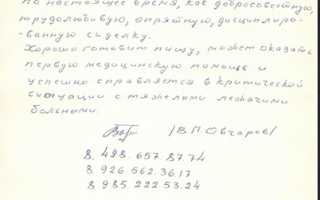 по настоящее время, как добросовестную,
трудолюбивую, опрятную, дисциплиро-
-ванную сиделку.
Хорошо готовит пищу, может оказать
первую медицинскую помощь и
успешно справляется в критической
ситуации с тяжелыми лежачими
больными.
/В П Овчаров/
8 498 657 87 74
8 926 562.36.17
8 985 222 53.24